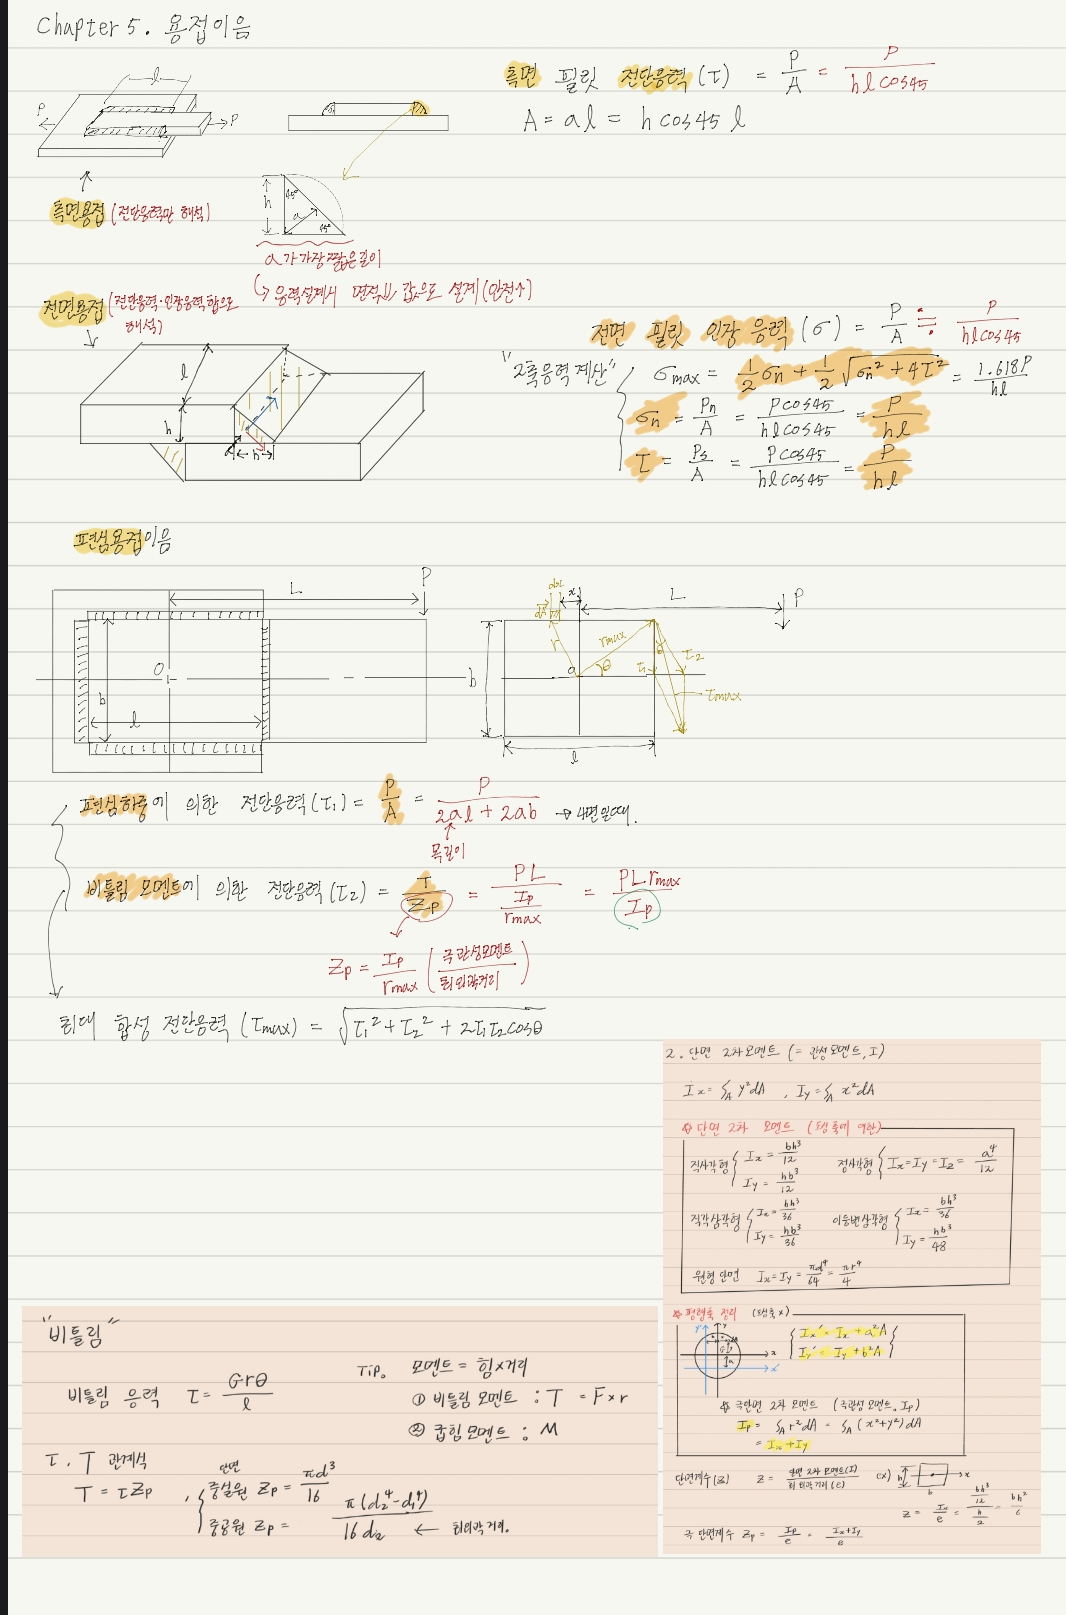 Chapter 5. 용접이음
측면 필릿 전단응력(τ) = P/A = P/(hlcos45)
A = al = hcos45 l
l
P
P
측면용접 (전단응력만 해석)
h
45°
a
45°
a가 가장 짧은 길이
↳ 응력설계시 면적↓↓ 값으로 설계(안전↑)
전면용접 (전단응력·인장응력 합으로 해석)
l
h
h
전면 필릿 인장 응력 (σ) = P/A ≒ P/(hlcos45)
"2축응력 계산"
σmax = 1/2 σn + 1/2 √(σn² + 4τ²) = 1.618P/hl
σn = Pn/A = Pcos45/(hlcos45) = P/hl
τ = Ps/A = Pcos45/(hlcos45) = P/hl
편심용접이음
L
P
O
b
l
dx
x
dA
r
rmax
θ
L
P
b
τ1
τ2
τmax
l
편심하중에 의한 전단응력(τ1) = P/A = P/(2al + 2ab) → 4면일때.
목길이
비틀림 모멘트에 의한 전단응력(τ2) = T/Zp = PL/(Ip/rmax) = PLrmax/Ip
Zp = Ip/rmax (극관성모멘트/최외곽거리)
최대 합성 전단응력(τmax) = √(τ1² + τ2² + 2τ1τ2cosθ)
2. 단면 2차모멘트 (= 관성모멘트, I)
Ix = ∫A y²dA , Iy = ∫A x²dA
☆ 단면 2차 모멘트 (도심축에 의한)
직사각형 { Ix = bh³/12
Iy = hb³/12
정사각형 { Ix = Iy = Iz = a⁴/12
직각삼각형 { Ix = bh³/36
Iy = hb³/36
이등변삼각형 { Ix = bh³/36
Iy = hb³/48
원형 단면 Ix = Iy = πd⁴/64 = πr⁴/4
☆ 평행축 정리 (도심축 x)
y'
y
x
x'
{ Ix' = Ix + a²A
Iy' = Iy + b²A }
☆ 극단면 2차 모멘트 (극관성 모멘트, Ip)
Ip = ∫A r²dA = ∫A (x² + y²)dA
= Ix + Iy
단면계수(Z) Z = 단면 2차 모멘트(I)/최외곽거리(e) ex) h b x
Z = Ix/e = (bh³/12)/(h/2) = bh²/6
극 단면계수 Zp = Ip/e = (Ix+Iy)/e
"비틀림"
비틀림 응력 τ = Grθ/l
Tip. 모멘트 = 힘×거리
① 비틀림 모멘트 : T = F×r
② 굽힘 모멘트 : M
τ, T 관계식
T = τZp , { 단면
중실원 Zp = πd³/16
중공원 Zp = π(d2⁴-d1⁴)/16d2 ← 최외곽거리.